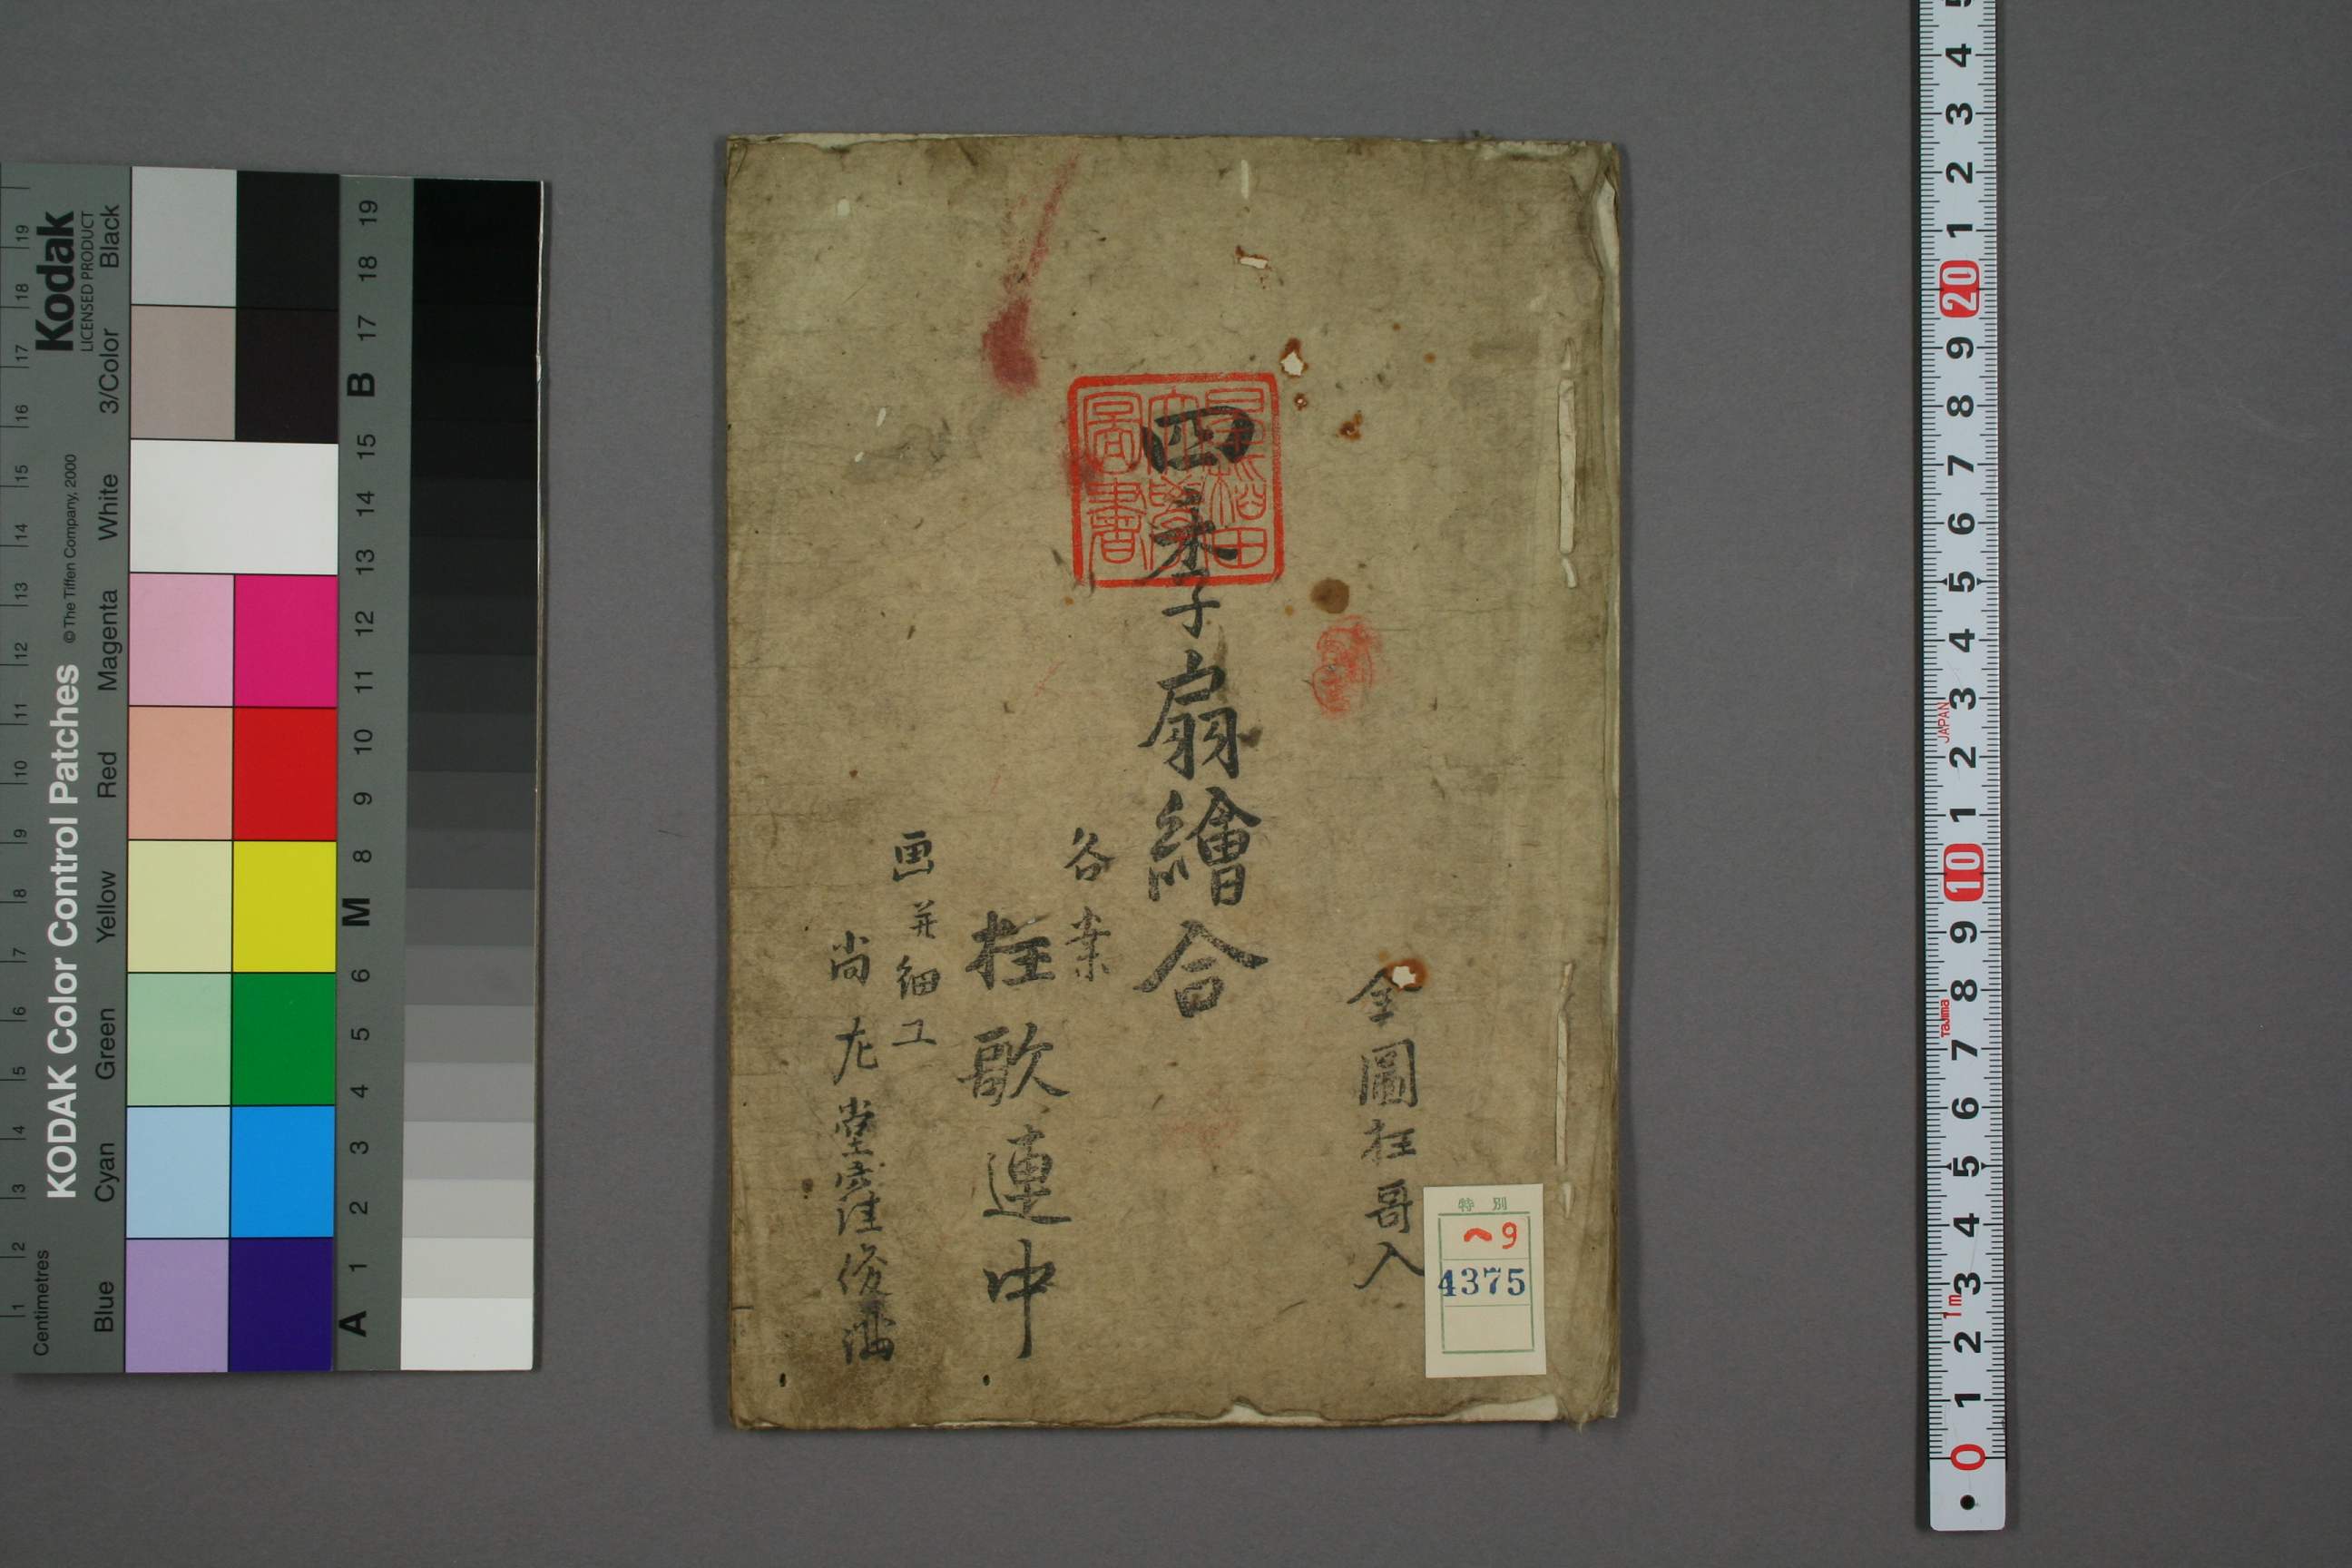 全圖狂哥入
四季子扇繪合
各案
狂歌連中
画并細工
尚左堂窪俊滿
早稲田大學圖書
特別
ヘ9
4375
KODAK Color Control Patches
© The Tiffen Company, 2000
Kodak
LICENSED PRODUCT
Centimetres
Blue
Cyan
Green
Yellow
Red
Magenta
White
3/Color
Black
1 2 3 4 5 6 7 8 9 10 11 12 13 14 15 16 17 18 19
A 1 2 3 4 5 6 M 8 9 10 11 12 13 14 15 B 17 18 19
0 1 2 3 4 5 6 7 8 9 10 1 2 3 4 5 6 7 8 9 20 1 2 3 4 5
1m
Tajima
JAPAN